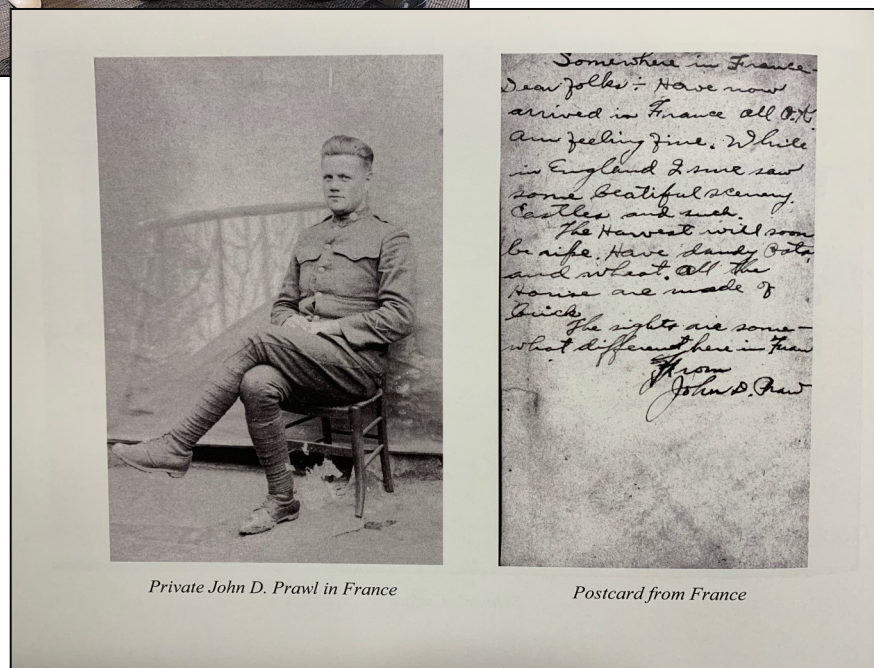 Somewhere in France-
Dear folks:- Have now
arrived in France all O.K.
Am feeling fine. While
in England I sure saw
some beatiful scenery.
Castles and such.
The Harvest will soon
be ripe. Have dandy Oats
and wheat. All the
House are made of
brick
The sights are some-
what different here in Fran
From
John D. Praw
Private John D. Prawl in France
Postcard from France